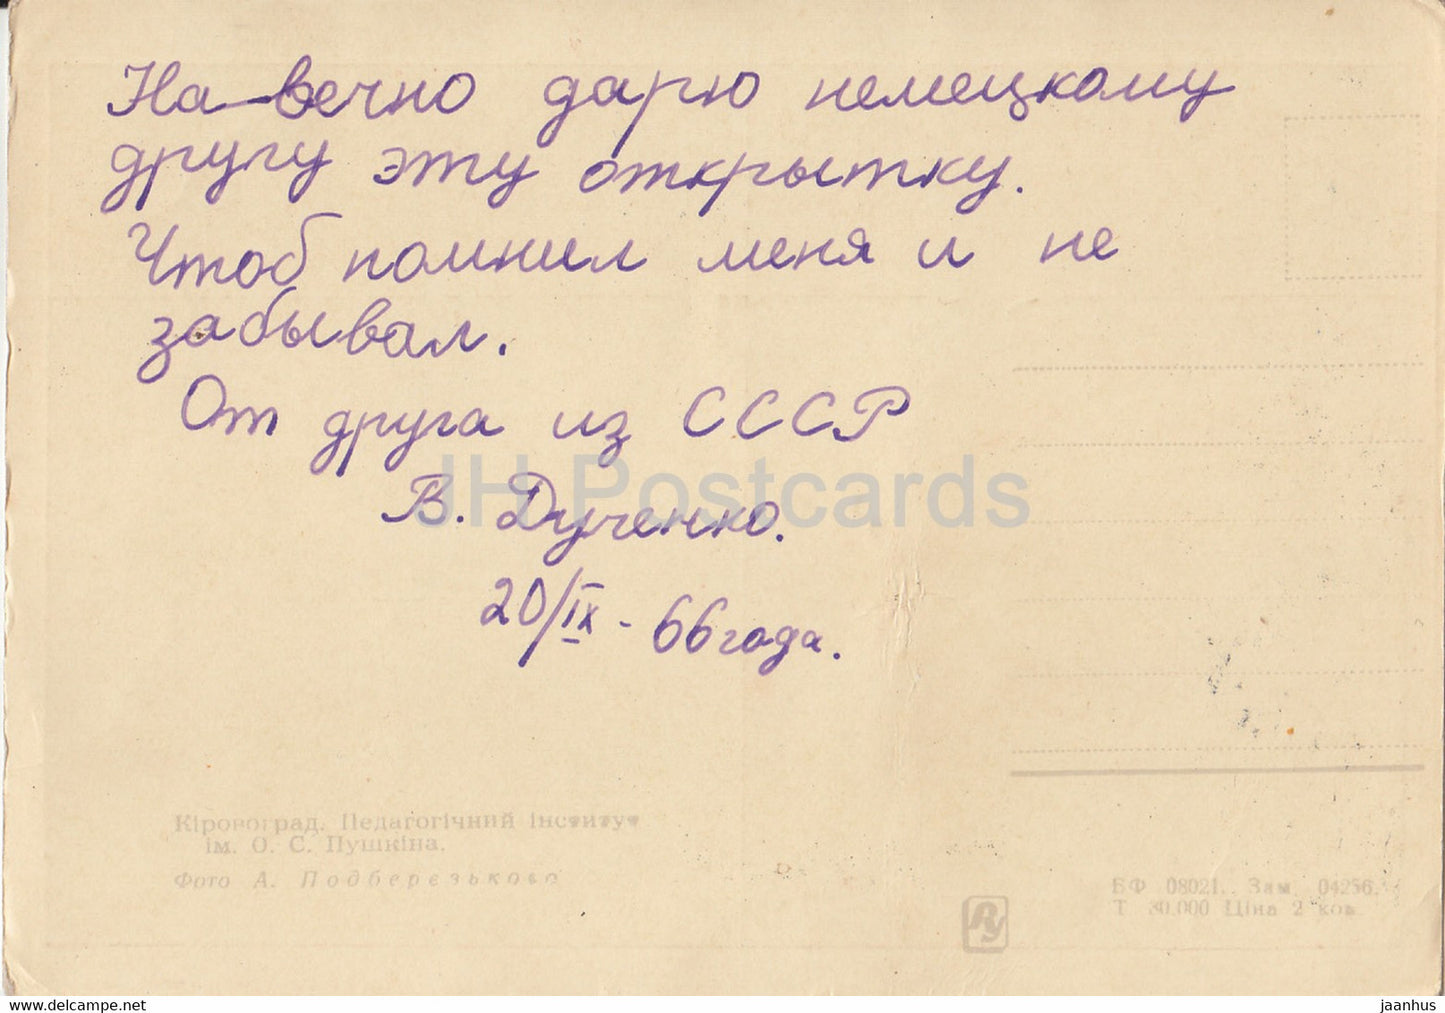 На-вечно дарю немецкому
другу эту открытку.
Чтоб помнил меня и не
забывал.
От друга из СССР
JH Postcards
В. Дученко.
20/IX - 66 года.
Кіровоград. Педагогічний інститут
ім. О. С. Пушкіна.
Фото А. Подберезького
БФ 08021. Зам. 04256.
Т 30.000 Ціна 2 коп.
РУ
www.delcampe.net
jaanhus